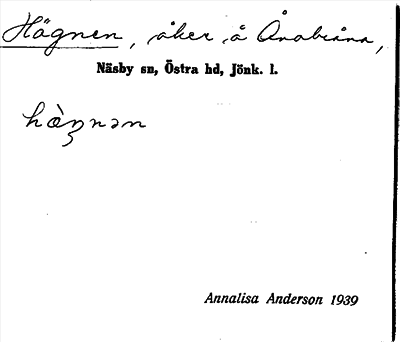 Hägnen, åker å Ånabränna,
Näsby sn, Östra hd, Jönk. l.
Annalisa Anderson 1939